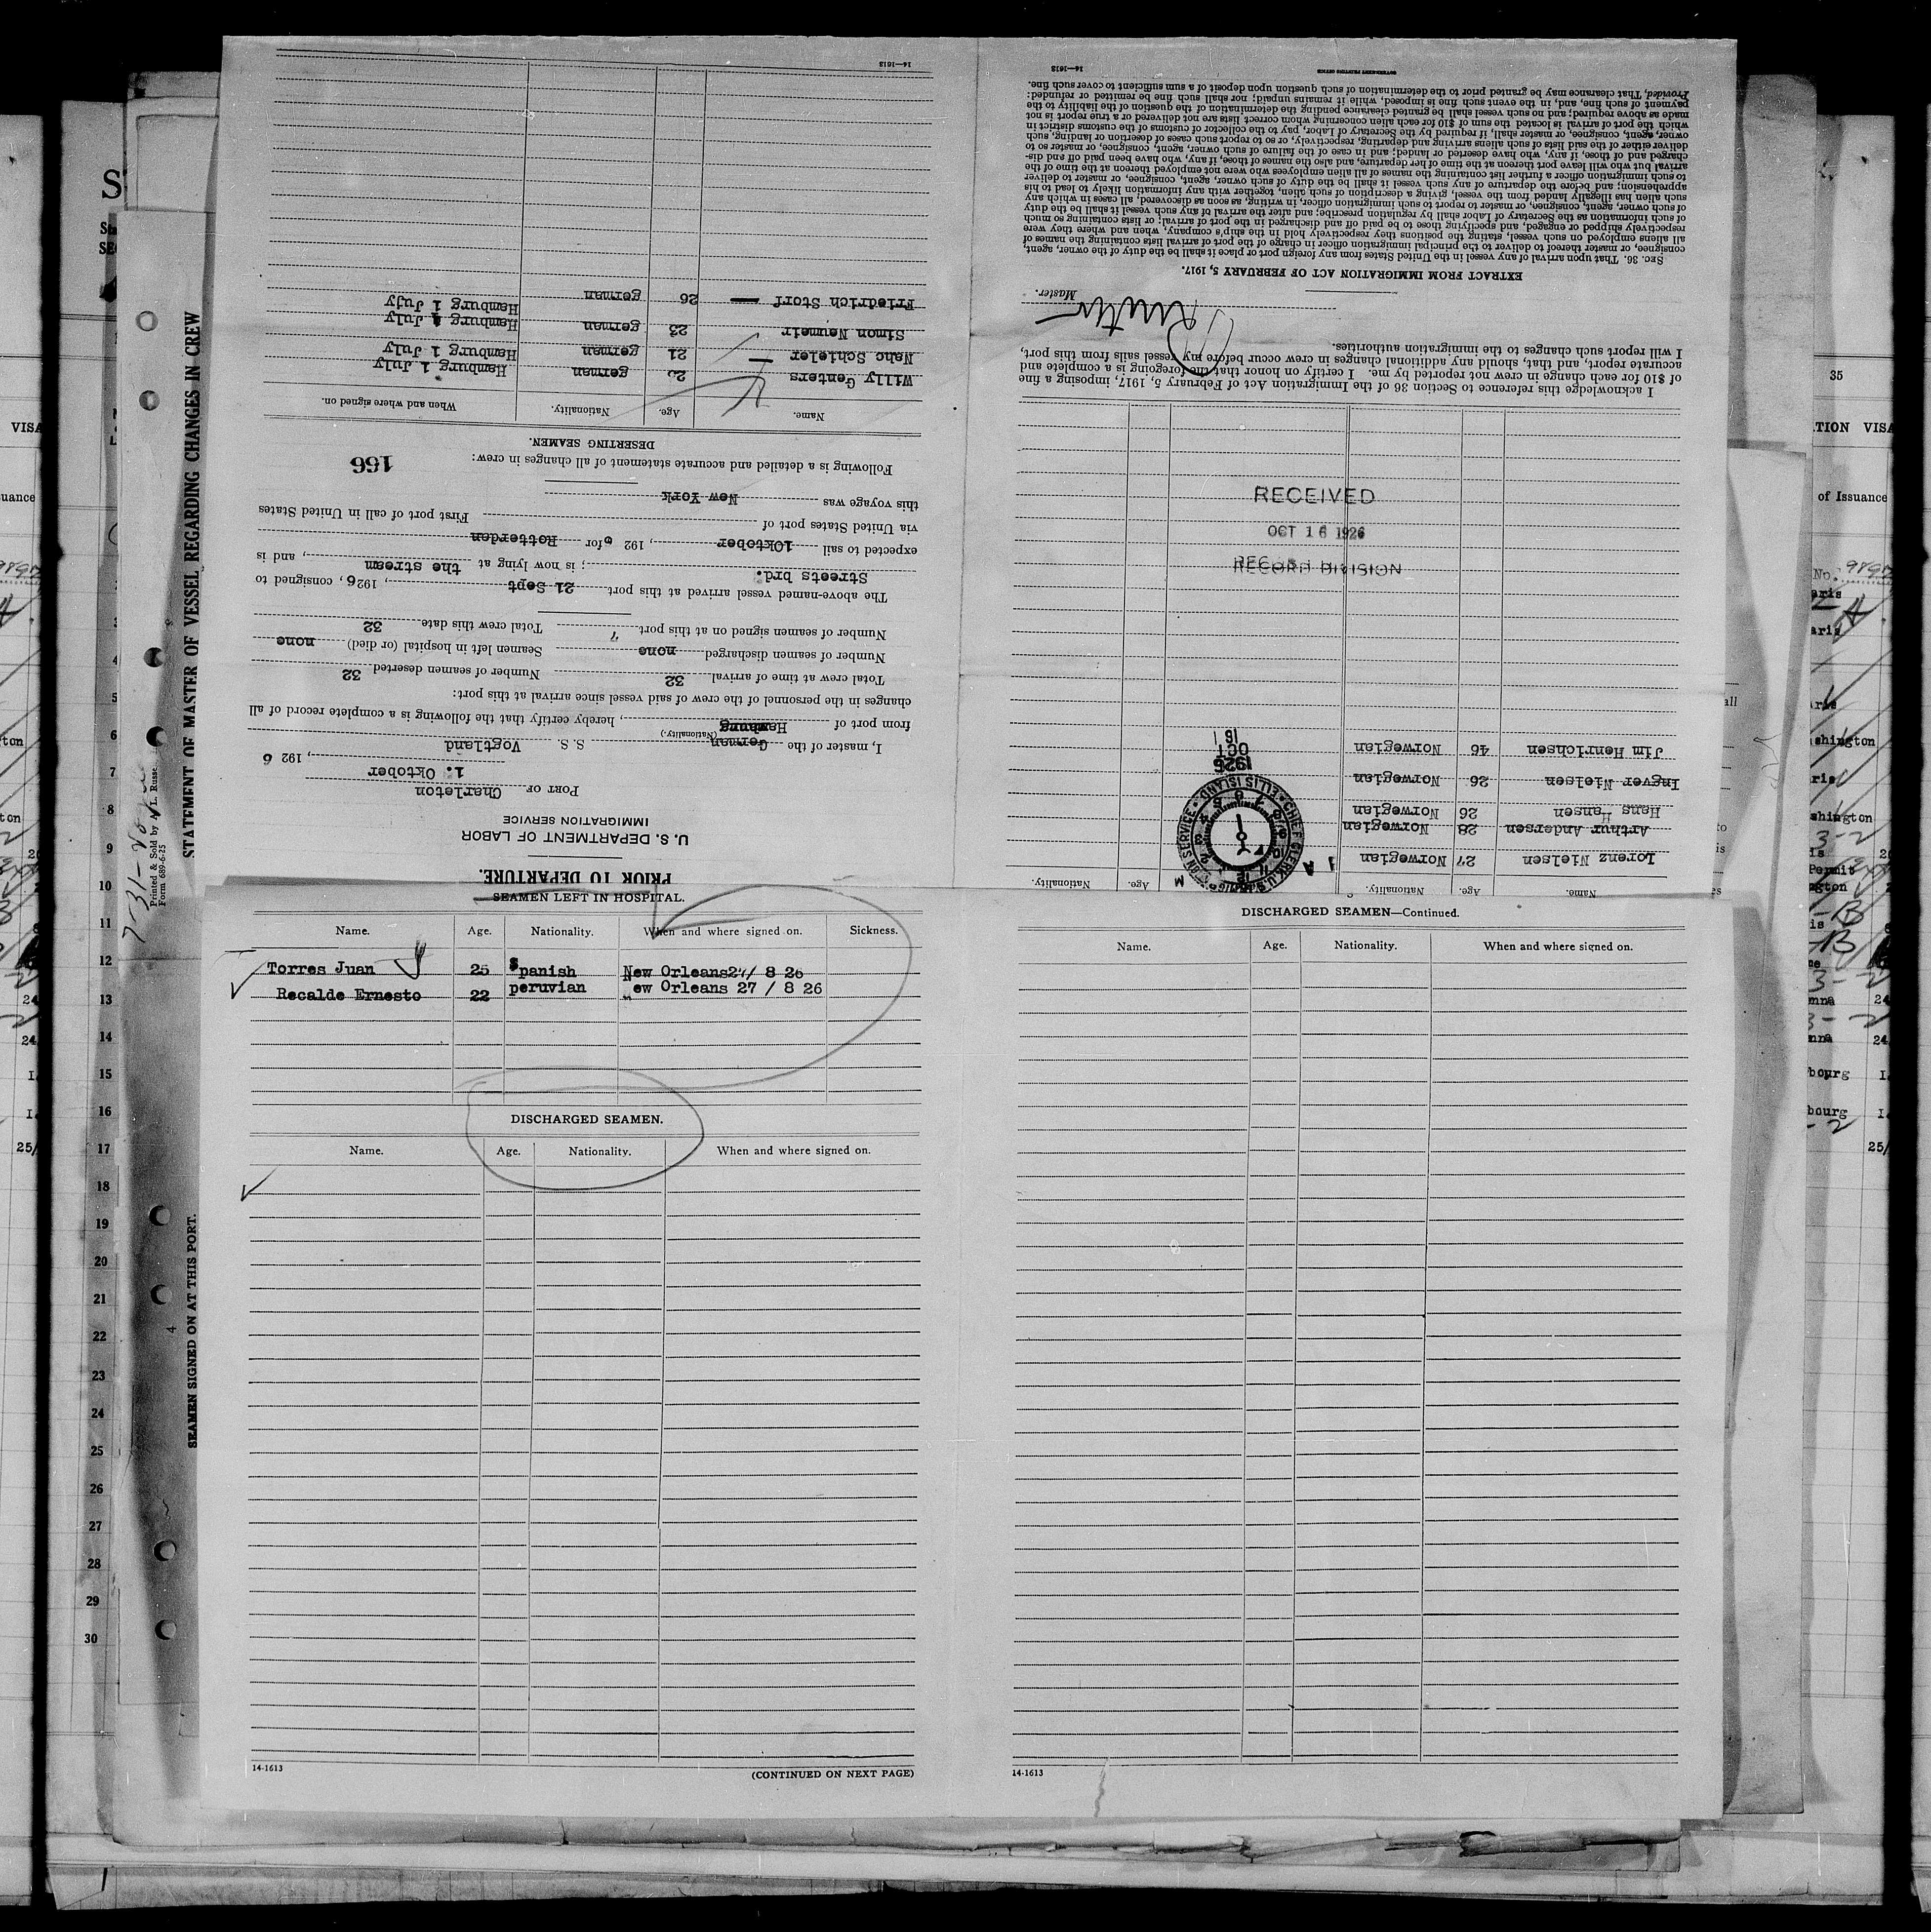 STATEMENT OF MASTER OF VESSEL REGARDING CHANGES IN CREW
PRIOR TO DEPARTURE.
U. S. DEPARTMENT OF LABOR
IMMIGRATION SERVICE
PORT OF Charleton
1. Oktober, 192 6
I, master of the German S. S. Vogtland
(Nationality.)
from port of Hamburg, hereby certify that the following is a complete record of all
changes in the personnel of the crew of said vessel since arrival at this port:
Total crew at time of arrival 32 Number of seamen deserted 32
Number of seamen discharged none Seamen left in hospital (or died) none
Number of seamen signed on at this port 7 Total crew this date 32
The above-named vessel arrived at this port 21 Sept, 1926, consigned to
Streets brd. ; is now lying at the stream, and is
expected to sail 1Oktober, 192 6 for Rotterdan
via United States port of First port of call in United States
this voyage was New York
Following is a detailed and accurate statement of all changes in crew: 166
DESERTING SEAMEN.
Name. Age. Nationality. When and where signed on.
Willy Genters 20 german Hamburg 1 July
Nahc Schieler 21 german Hamburg 1 July
Simon Neumeir 23 german Hamburg 1 July
Friedrich Storf 26 german Hamburg 1 Jujy
14—1613
SEAMEN SIGNED ON AT THIS PORT.
Name. Age. Nationality. Age. Nationality.
Lorenz Nielsen 27 Norwegian
Arthur Andersen 28 Norwegian
Hans Hansen 26 Norwegian
Ingver Nielsen 26 Norwegian
Jim Henrichsen 46 Norwegian
CHIEF CLERK U.S. IMMIGRATION SERVICE ELLIS ISLAND
1926
OCT
16
RECEIVED
OCT 16 1926
RECORD DIVISION
I acknowledge this reference to Section 36 of the Immigration Act of February 5, 1917, imposing a fine
of $10 for each change in crew not reported by me. I certify on honor that the foregoing is a complete and
accurate report, and that, should any additional changes in crew occur before my vessel sails from this port,
I will report such changes to the immigration authorities.
Master.
EXTRACT FROM IMMIGRATION ACT OF FEBRUARY 5, 1917.
SEC. 36. That upon arrival of any vessel in the United States from any foreign port or place it shall be the duty of the owner, agent,
consignee, or master thereof to deliver to the principal immigration officer in charge of the port of arrival lists containing the names of
all aliens employed on such vessel, stating the positions they respectively hold in the ship's company, when and where they were
respectively shipped or engaged, and specifying those to be paid off and discharged in the port of arrival; or lists containing so much
of such information as the Secretary of Labor shall by regulation prescribe; and after the arrival of any such vessel it shall be the duty
of such owner, agent, consignee, or master to report to such immigration officer, in writing, as soon as discovered, all cases in which any
such alien has illegally landed from the vessel, giving a description of such alien, together with any information likely to lead to his
apprehension; and before the departure of any such vessel it shall be the duty of such owner, agent, consignee, or master to deliver
to such immigration officer a further list containing the names of all alien employees who were not employed thereon at the time of the
arrival but who will leave port thereon at the time of her departure, and also the names of those, if any, who have been paid off and dis-
charged and of those, if any, who have deserted or landed; and in case of the failure of such owner, agent, consignee, or master so to
deliver either of the said lists of such aliens arriving and departing, respectively, or so to report such cases of desertion or landing, such
owner, agent, consignee, or master shall, if required by the Secretary of Labor, pay to the collector of customs of the customs district in
which the port of arrival is located the sum of $10 for each alien concerning whom correct lists are not delivered or a true report is not
made as above required; and no such vessel shall be granted clearance pending the determination of the question of the liability to the
payment of such fine, and, in the event such fine is imposed, while it remains unpaid; nor shall such fine be remitted or refunded:
Provided, That clearance may be granted prior to the determination of such question upon deposit of a sum sufficient to cover such fine.
14—1613
GOVERNMENT PRINTING OFFICE
SEAMEN LEFT IN HOSPITAL.
Name. Age. Nationality. When and where signed on. Sickness.
Torres Juan 25 Spanish New Orleans27/ 8 26
Recalde Ernesto 22 peruvian New Orleans 27 / 8 26
DISCHARGED SEAMEN.
Name. Age. Nationality. When and where signed on.
14-1613
(CONTINUED ON NEXT PAGE)
DISCHARGED SEAMEN—Continued.
Name. Age. Nationality. When and where signed on.
14-1613
Printed & Sold by
Form 689-6-25
3
4
5
6
7
8
9
10
11
12
13
14
15
16
17
18
19
20
21
22
23
24
25
26
27
28
29
30
35
VISA
of Issuance
No.